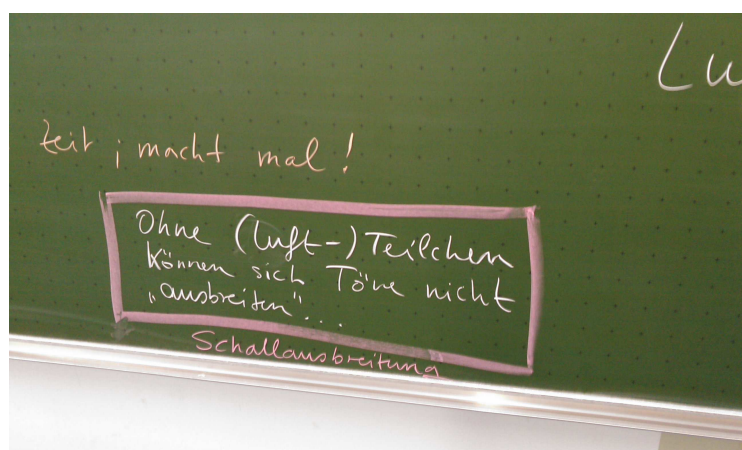 Lu
Zeit ; macht mal !
Ohne (Luft-) Teilchen
können sich Töne nicht
„ausbreiten"...
Schallausbreitung